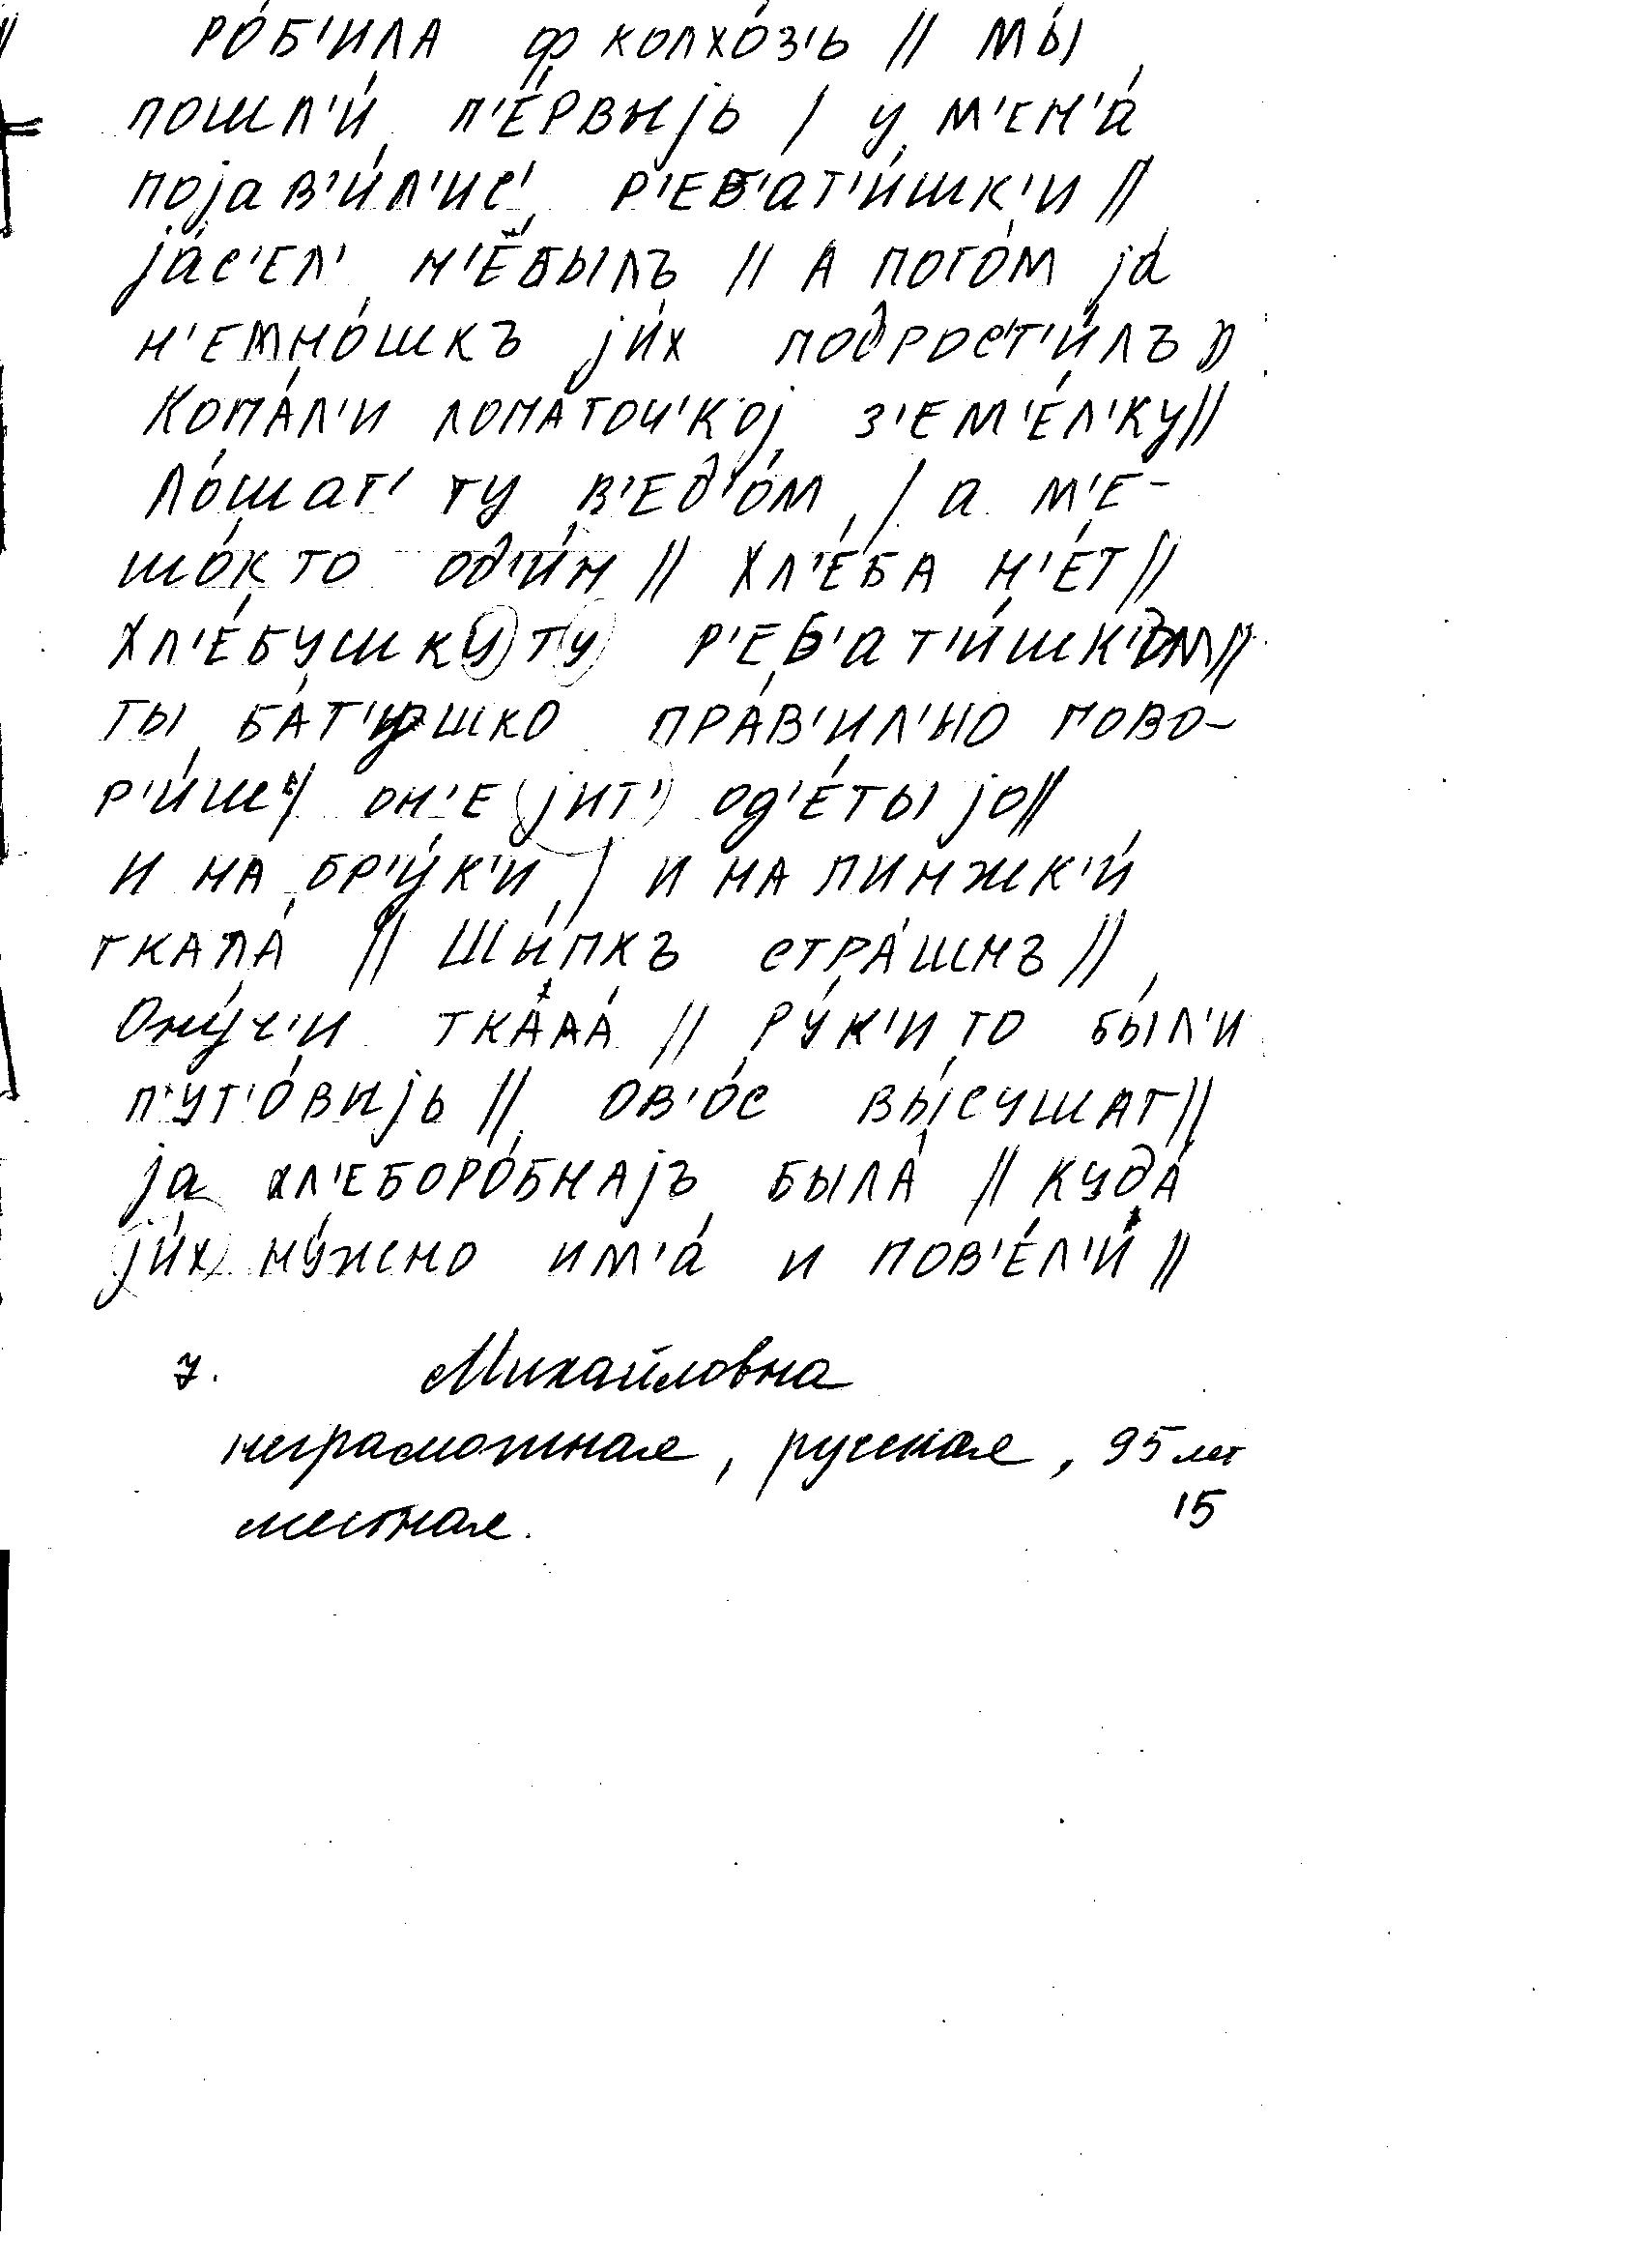 ро́б'ила ф колхо́з'ь // мы́
пошл'и́ п'е́рвыjь / у м'ен'а́
поjав'и́л'ис' р'еб'ат'и́шк'и //
jа́с'ел' н'е́былъ // а пото́м jа́
н'емно́шкъ jи́х подрост'и́лъ //
копа́л'и лопа́точ'коj з'ем'е́л'ку //
ло́шат' ту в'ед'о́м / а м'е-
шо́к то од'и́н // хл'е́ба н'е́т //
хл'е́бушку ту р'еб'ат'и́шк'ом //
ты ба́т'ушко пра́в'ил'но гово-
р'и́ш / он'е jит' од'е́тыjо //
и на бр'у́к'и / и на пинжк'и́
ткала́ // шы́пкъ стра́шнъ //
ону́ч'и ткала́ // ру́к'и то бы́л'и
п'ут'о́выjь // ов'о́с вы́сушат //
jа хл'еборо́бнаjъ была́ // куда́
jи́х ну́жно им'а́ и пов'е́л'и //
7. Михайловна
неграмотная, русская, 95 лет
местная. 15